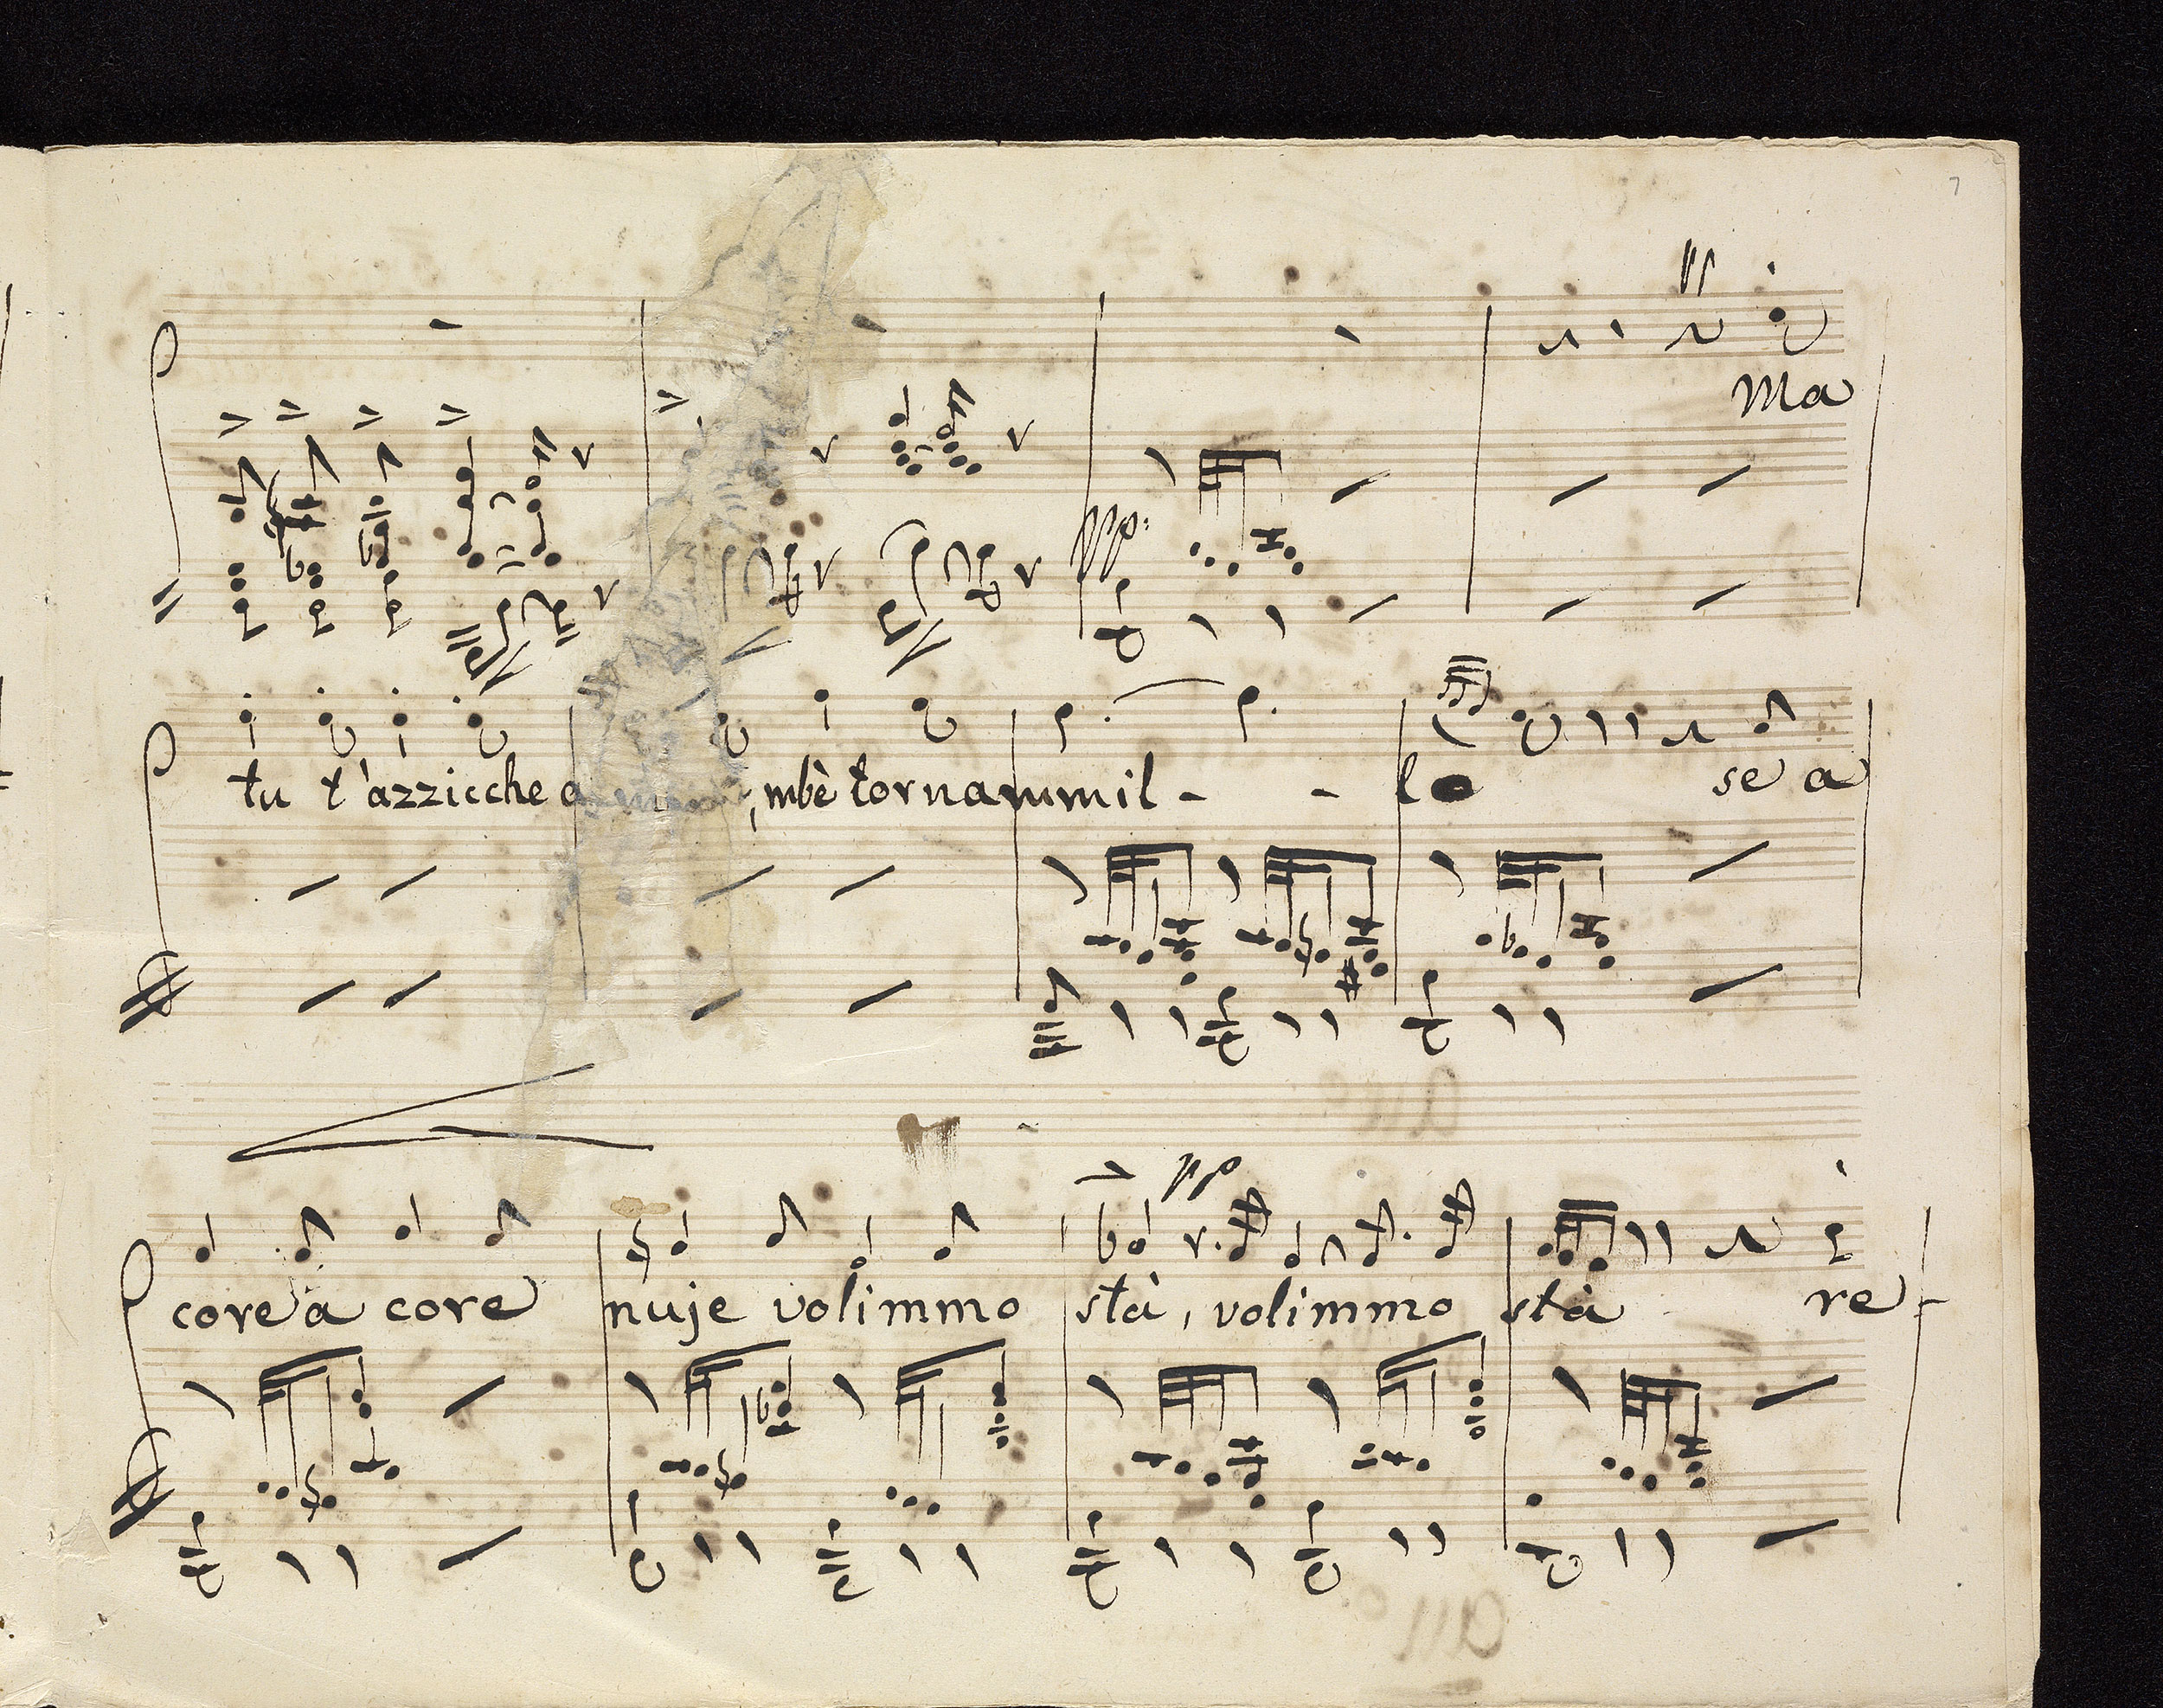 7
ppp:
Ma
tu t'azzicche a , mbè tornammil - - lo se a
pp
core a core nuje volimmo stà, volimmo stà re-